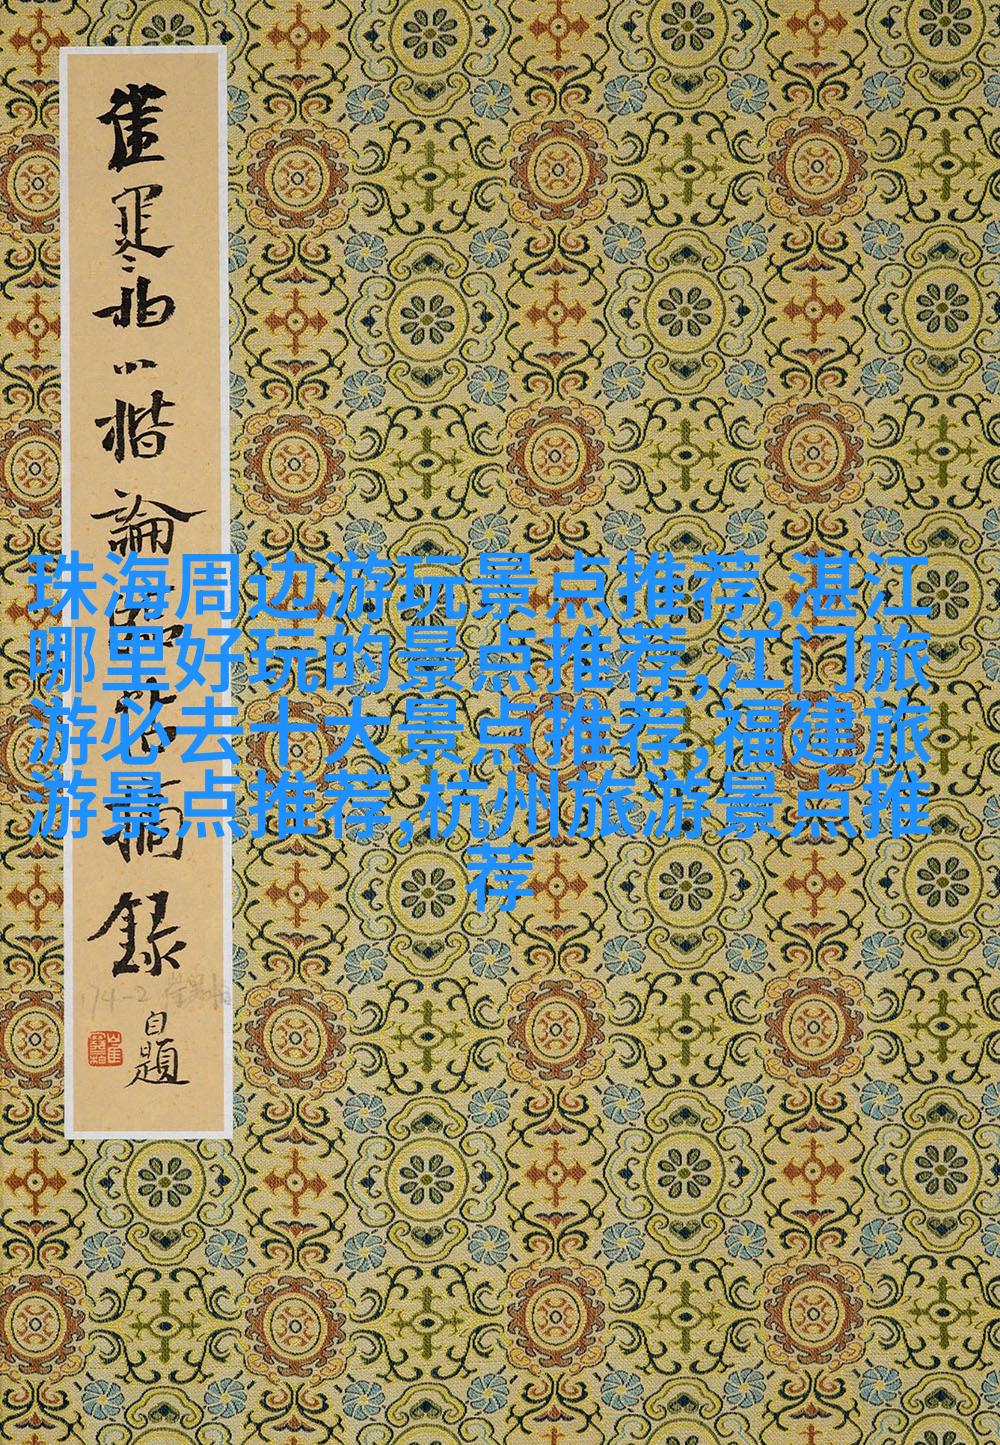 崔寒柏小楷論摘錄
自題
珠海周边游玩景点推荐,湛江
哪里好玩的景点推荐,江门旅
游必去十大景点推荐,福建旅
游景点推荐,杭州旅游景点推
荐